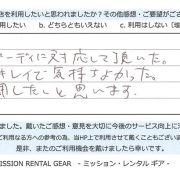 店を利用したいと思われましたか？その他感想・ご要望がござ
用したい b. どちらともいえない c. 利用はしない (理
ーディに対応して頂いた。
キレイで気持ちよかった。
用したいと思います.
ました。戴いたご感想・意見を大切に今後のサービス向上に活
ご利用になる方への参考の為、当HP上で利用させて戴くこともございます
是非、またのご利用機会を戴けましたら幸いです。
MISSION RENTAL GEAR - ミッション・レンタル ギア -